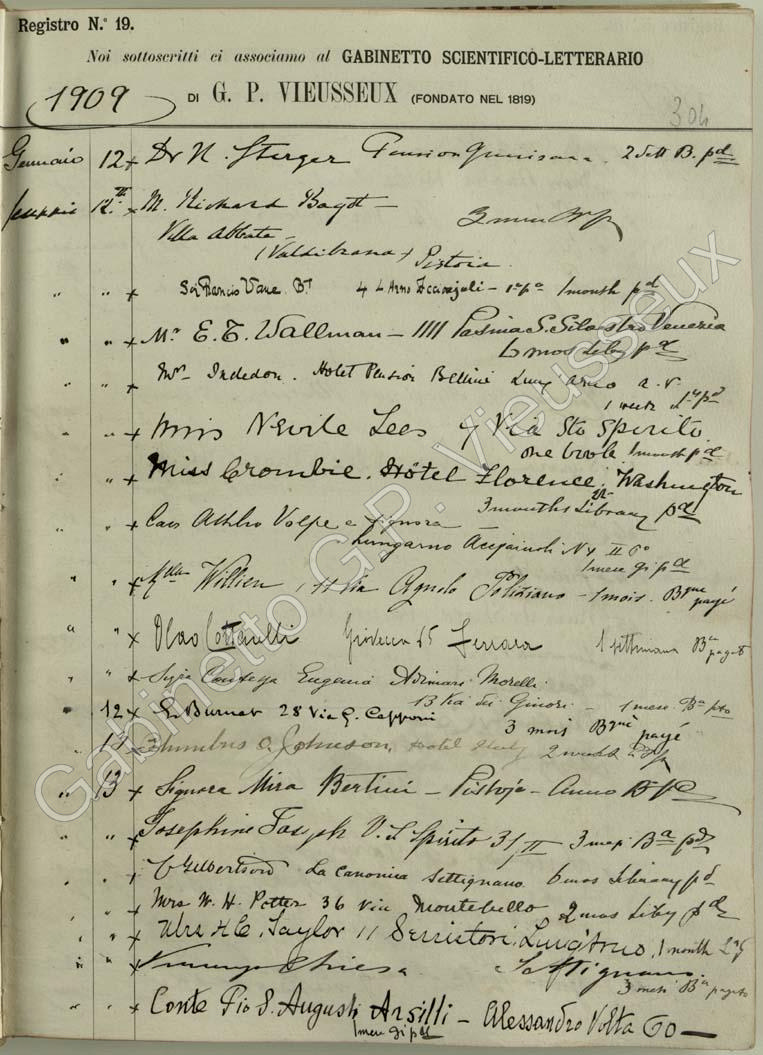 Registro N.° 19.
Noi sottoscritti ci associamo al GABINETTO SCIENTIFICO-LETTERARIO
1909 DI G. P. VIEUSSEUX (FONDATO NEL 1819)
304
Gennaio 12 x Dr N. Pension 2 Sett B. pd
12 x M. Richard Bagot —
Villa Abbate —
(Valdibrana) Pistoia.
" " x Sir Francis Vane Bt 4 L Arno Acciajoli — 1 month pd
" " x Mr E. T. Wallman — 1111 S. Silvestro Venezia
6 mos Liby pd
" " x Hotel Pension Bellini Lung arno a. v.
1 week
" " x Miss Nevile Lees 9 Via Sto Spirito.
one book 1 month pd
" " x Miss Crombie. Hôtel Florence & Washington
3 months Library pd
" " x Volpe e Signora —
Lungarno Acciaiuoli N 4 II Po
1 mese gi pd
" " x Mlle Willien, Via Agnolo Poliziano — 1 mois. Bque payé
" " x Cottarelli Giovecca Ferrara 1 settimana Ba pagato
" " x Contessa Eugenia Adimari Morelli
13 Via dei Ginori — 1 mese Ba pto
" 12 x E. Burnat 28 Via G. Capponi
3 mois Bque payé
" 13 Columbus O. Johnson, Hotel Italy 2 weeks
" 13 x Signora Mira Bertini — Pistoja — Anno
" x Josephine V. S Spirito 31, II 3 mesi Ba pd
" " x Gilbertson La Canonica Settignano 6 mos Library pd
" x Mrs W. H. Potter 36 Via Montebello 2 mos Liby pd
" " x Mrs H. C. Taylor 11 Serristori, Lung'Arno, 1 month
" " x Chiesa Settignano.
3 mesi Ba pagato
" " x Conte Pio S. Augusti Arsilli — Alessandro Volta 60 —
1 mese gi pd
Gabinetto G.P. Vieusseux